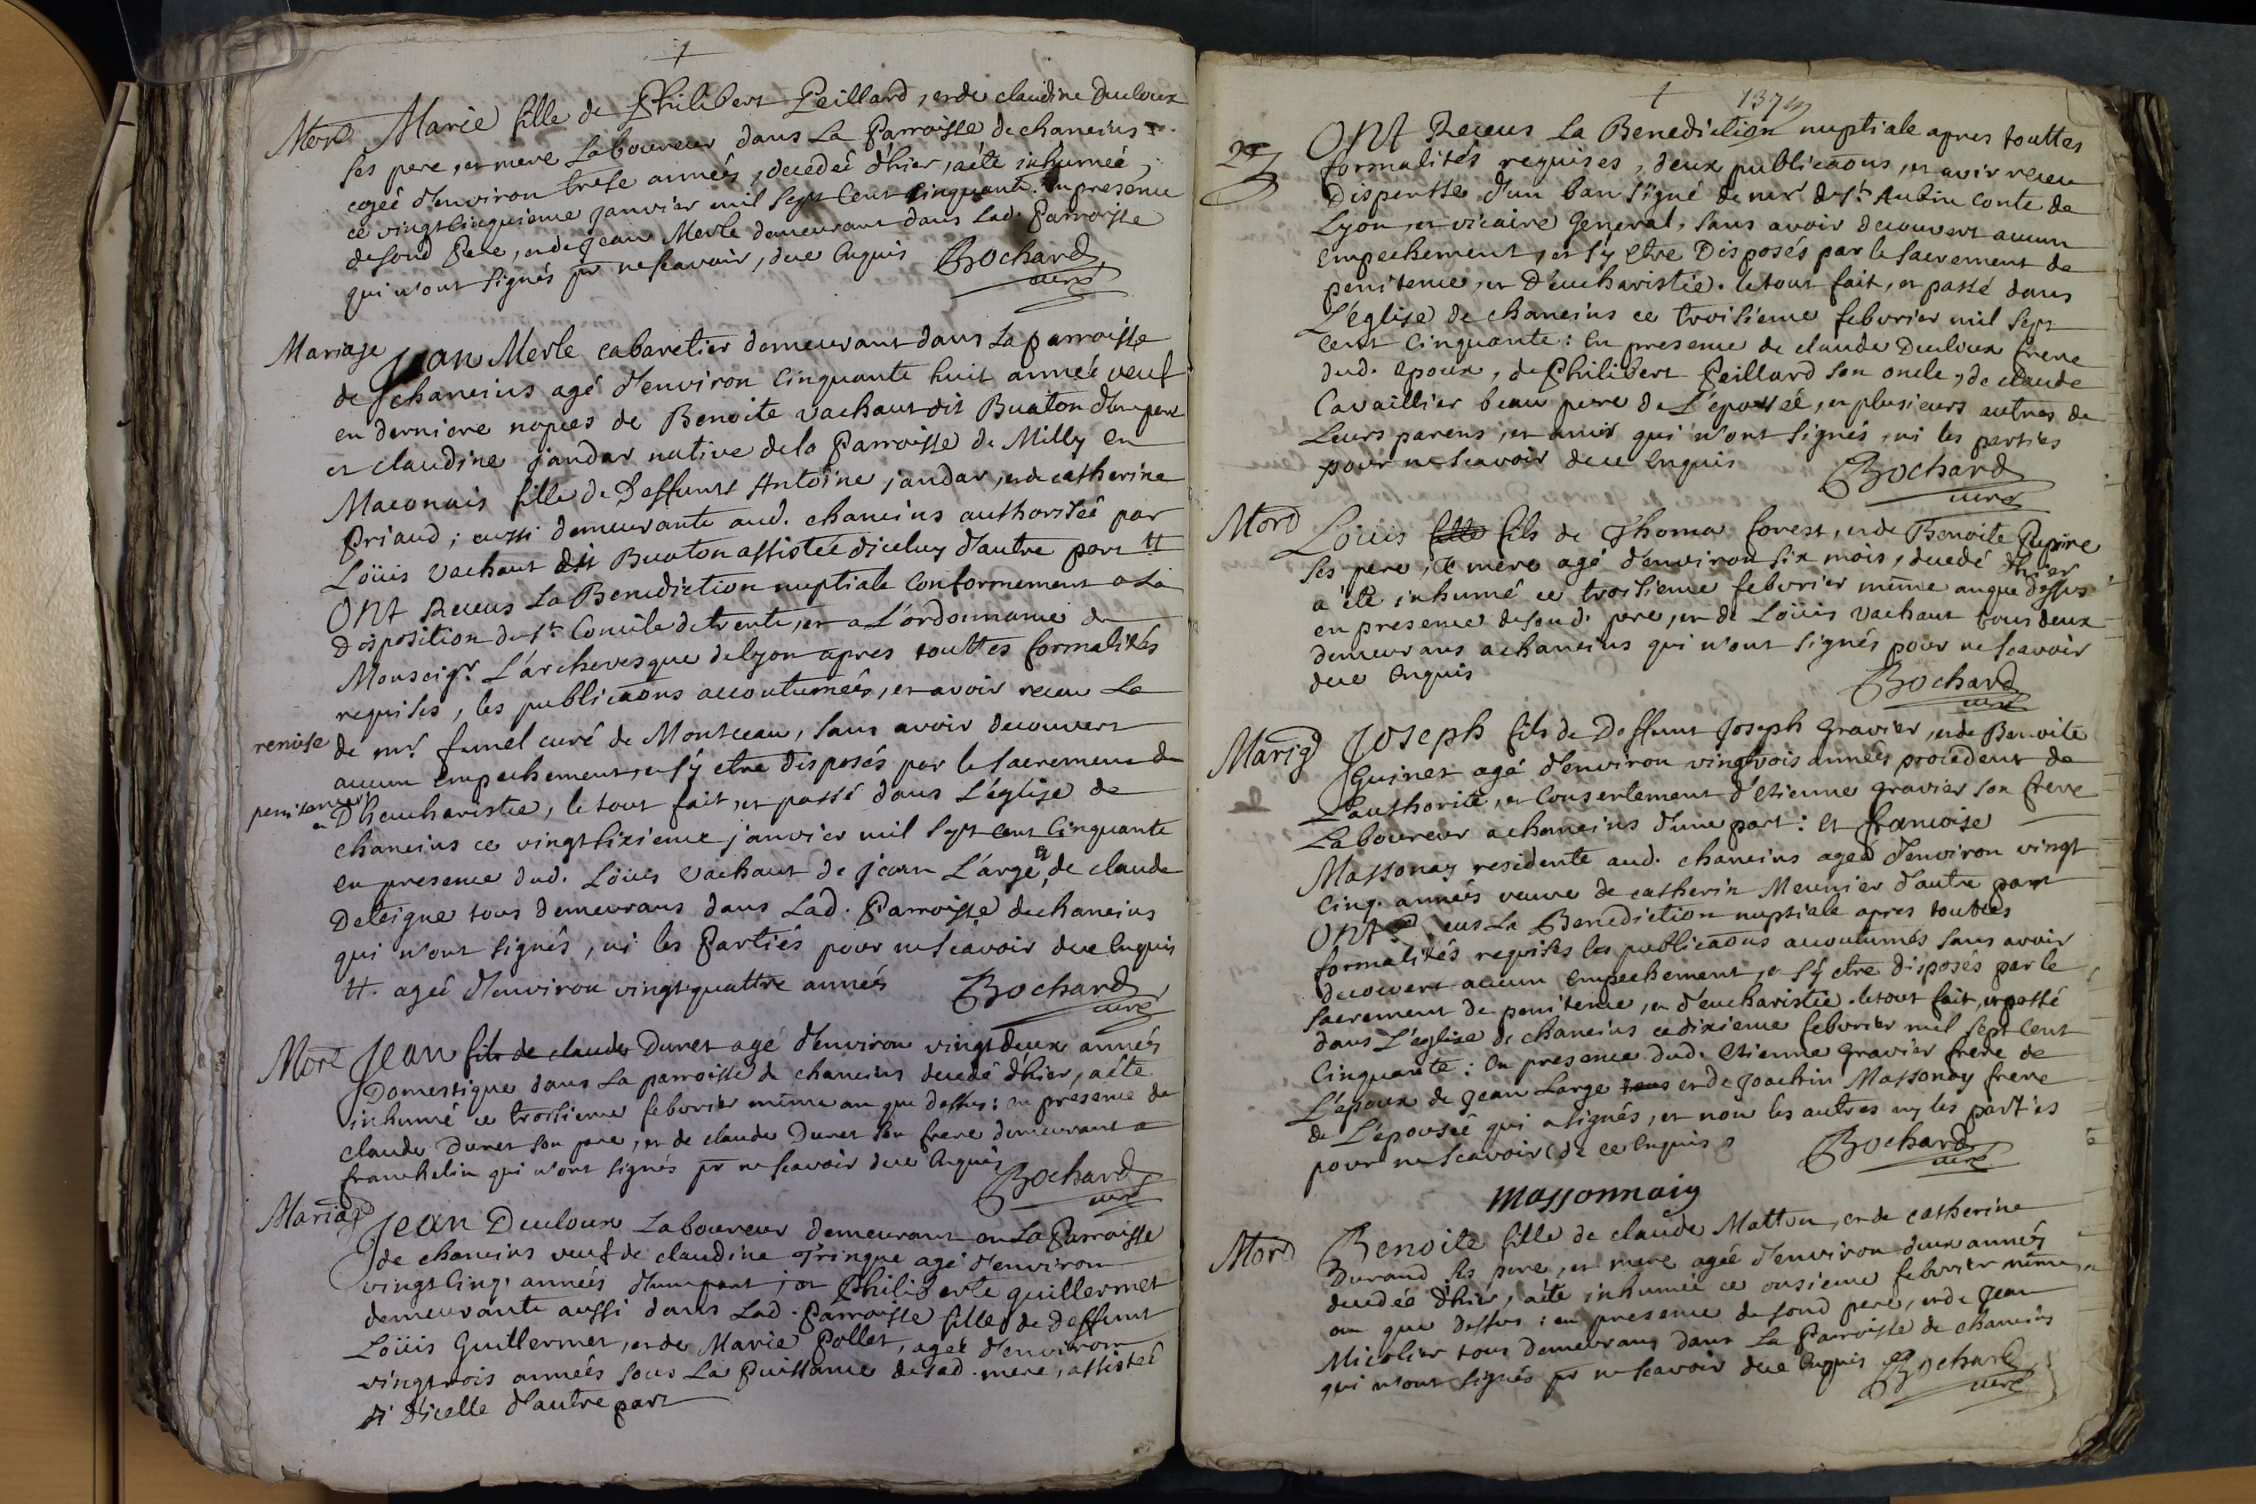 †
Mort Marie fille de Philibert Peillard, et de claudine Ducloux
ses pere, et mere Laboureur dans La Parroisse de chaneins
agée d'environ trese années, decedeé d'hier, aété inhumeé,
ce vingtcinquieme janvier mil sept cent cinquante. En presence
desond Pere, et de Jean Merle demeurant dans Lad. Parroisse
qui n'ont signés pr ne scavoir, dece enquis Bochard
curé
Mariage Jean Merle cabaretier demeurant dans La parroisse
de chaneins agé d'environ cinquante huit année veuf
en derniere nopces de Benoite vachaut dit Buaton d'une part
et claudine jandar native dela Parroisse de Milly en
Maconnais fille de Deffunt Antoine jandar, et de catherine
Priaud; aussi demeurante aud. chaneins authoriseé par
Loüis vachaut dit Buaton assisteé d'iceluy d'autre part #
ONt Receus La Benediction nuptiale conformement a La
Disposition du st Concile de trente, et a L'ordonnance de
Monseigr. L'archevesque de lyon apres touttes formalités
requises, les publicaons accoutumeés, et avoir receu La
remise de mr. fumel curé de Montceau, sans avoir decouvert
aucun empechement, et s'y etre disposés par le sacrement de
penitence et D'heucharistie, le tout fait, et passé dans L'église de
chaneins ce vingtsixieme janvier mil sept cent cinquante
en presence dud. Loüis vachaut de jean L'argé, et de claude
Deleigne tous demeurans dans Lad. Parroisse de chaneins
qui n'ont signés, ni les Partiés pour ne scavoir dece enquis
#. ageé d'environ vingtquattre années Bochard
curé
Mort Jean fils de claude Duret agé d'environ vingt deux années
Domestique dans La parroisse de chaneins decedé d'hier, aété
inhumé ce troisieme febvrier même an que dessus: en presence de
claude Duret son pere, et de claude Duret son frere demeurant a
franchelin qui n'ont signés pr ne scavoir dece enquis
Bochard
curé
Mariage Jean Ducloux Laboureur demeurant en La Parroisse
de chaneins veuf de claudine Tringue agé d'environ
vingt cinq. années d'une part; et Philiberte guillermet
demeurante aussi dans Lad. Parroisse fille de deffunt
Loüis Guillermet, et de Marie Pollet, ageé d'environ
vingtrois années sous La Puissance desad. mere, assisteé
d'icelle d'autre part
† 137
ONt Receus La Benediction nuptiale apres touttes
formalités requises, deux publicaons, et avoir receu
Dispensse d'un ban signé de mr. de st. Aubin conte de
Lyon, et vicaire General, sans avoir decouvert aucun
empechement, et s'y etre Disposés par le sacrement de
penitence, et D'eucharistie. le tout fait, et passé dans
L'église de chaneins ce troisieme febvrier mil sept
cent cinquante: en presence de claude Ducloux frere
dud. epoux, de Philibert Peillard son oncle, de claude
Cavaillier beau pere de L'epouseé, et plusieurs autres de
Leurs parens, et amis qui n'ont signés, ni les parties
pour ne scavoir dece enquis Bochard
curé
Mort Loüis fille fils de Thoma forest, et de Benoite
ses pere, et mere agé d'environ six mois, decedé d'hier
a été inhumé ce troisieme febvrier même anque dessus
en presence desond. pere, et de Loüis vachaut tous deux
demeurans achaneins qui n'ont signés pour ne scavoir
dece enquis
Bochard
curé
Mariage Joseph fils de Deffunt Joseph Gravier, et de Benoite
Guinet agé d'environ vingtrois années procedent de
L'authorité, et consentement d'etienne gravier son frere
Laboureur achaneins d'une part: et francoise
Massonay residente aud. chaneins ageé d'environ vingt
cinq. années veuve de catherin Meunier d'autre part
ONt eus La Benediction nuptiale apres touttes
formalités requises les publicaons accoutumés sans avoir
decouvert aucun empechement, et s'y etre disposés par le
sacrement de penitence, et d'eucharistie. letout fait, et passé
dans L'église de chaneins cedixieme febvrier mil sept cent
cinquante: en presence dud. etienne gravier frere de
L'epoux de Jean Large tous et de Joachin Massonay frere
de L'epouseé qui asignés, et non les autres ny les parties
pour ne scavoir de ce enquis Bochard
curé
massonnaiy
Mort Benoite fille de claude Matton, et de catherine
Durand ses pere, et mere ageé d'environ deux années
decedéé d'hier, aété inhumée ce onsieme febvrier même
an que dessus: en presence de sond pere, et de Jean
Micolier tous demeurans dans La Parroisse de chaneins
qui n'ont signés pr ne scavoir dece enquis Bochard
curé